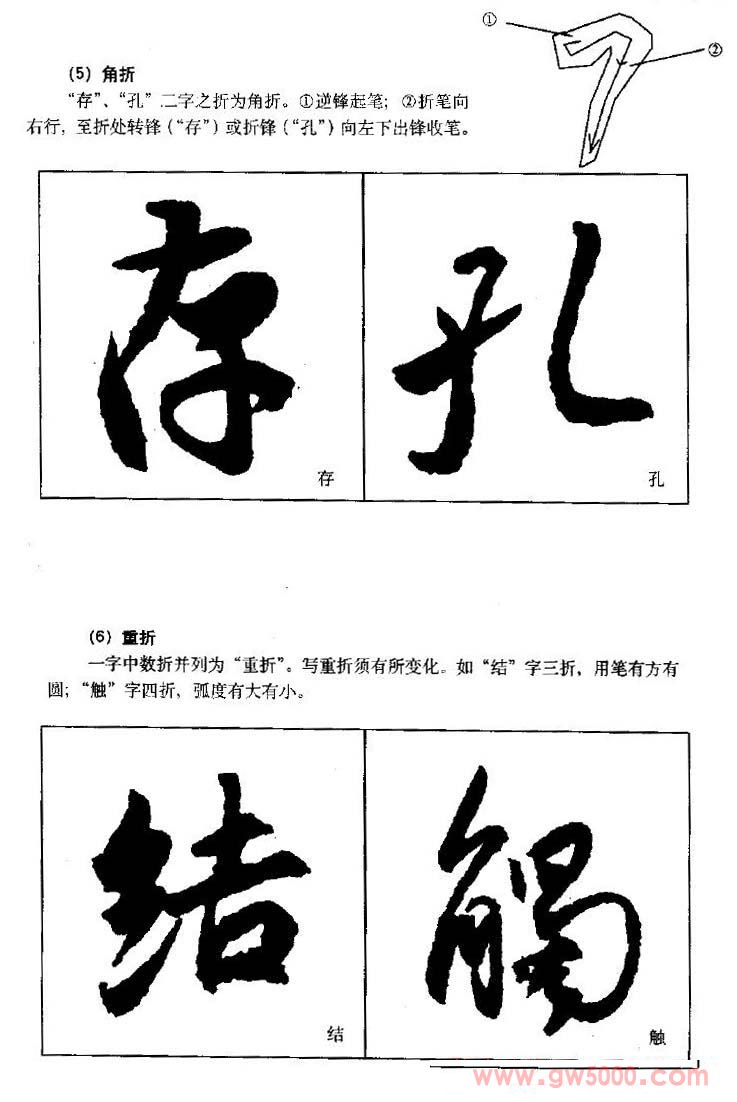 ①
②
(5) 角折
“存”、“孔”二字之折为角折。①逆锋起笔；②折笔向
右行，至折处转锋（“存”）或折锋（“孔”）向左下出锋收笔。
存 孔
存 孔
(6) 重折
一字中数折并列为“重折”。写重折须有所变化。如“结”字三折，用笔有方有
圆；“触”字四折，弧度有大有小。
结 觸
结 触
www.gw5000.com